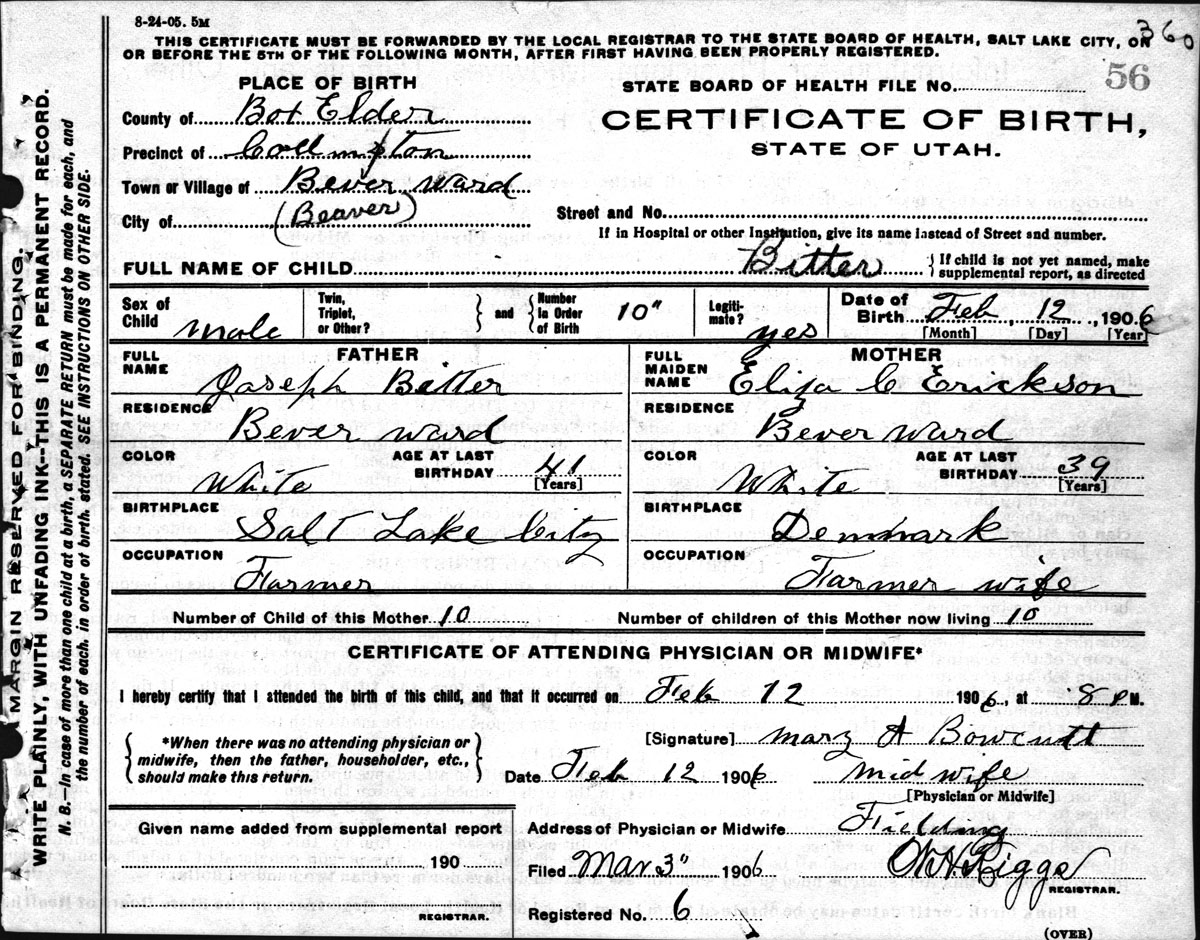 8-24-05. 5M
360
THIS CERTIFICATE MUST BE FORWARDED BY THE LOCAL REGISTRAR TO THE STATE BOARD OF HEALTH, SALT LAKE CITY, ON
OR BEFORE THE 5TH OF THE FOLLOWING MONTH, AFTER FIRST HAVING BEEN PROPERLY REGISTERED.
MARGIN RESERVED FOR BINDING.
WRITE PLAINLY, WITH UNFADING INK--THIS IS A PERMANENT RECORD.
N. B.—In case of more than one child at a birth, a SEPARATE RETURN must be made for each, and
the number of each, in order of birth, stated. SEE INSTRUCTIONS ON OTHER SIDE.
PLACE OF BIRTH
STATE BOARD OF HEALTH FILE No. 56
County of Box Elder
CERTIFICATE OF BIRTH,
STATE OF UTAH.
Precinct of
Town or Village of Bever Ward
City of (Beaver)
Street and No.
If in Hospital or other Institution, give its name instead of Street and number.
FULL NAME OF CHILD Bitter
If child is not yet named, make
supplemental report, as directed
Sex of Child male
Twin, Triplet, or Other?
and
Number in Order of Birth 10"
Legitimate? yes
Date of Birth Feb 12, 1906
[Month] [Day] [Year]
FATHER
FULL NAME Joseph Bitter
RESIDENCE Bever Ward
COLOR White
AGE AT LAST BIRTHDAY 41
[Years]
BIRTHPLACE Salt Lake City
OCCUPATION Farmer
MOTHER
FULL MAIDEN NAME Eliza C Erickson
RESIDENCE Bever Ward
COLOR White
AGE AT LAST BIRTHDAY 39
[Years]
BIRTHPLACE Denmark
OCCUPATION Farmer wife
Number of Child of this Mother 10
Number of children of this Mother now living 10
CERTIFICATE OF ATTENDING PHYSICIAN OR MIDWIFE*
I hereby certify that I attended the birth of this child, and that it occurred on Feb 12 1906, at 8 P M.
*When there was no attending physician or
midwife, then the father, householder, etc.,
should make this return.
[Signature] Mary A Bowcutt
Date Feb 12 1906
mid wife
[Physician or Midwife]
Given name added from supplemental report
190
REGISTRAR.
Address of Physician or Midwife Fielding
Filed Mar 3" 1906
Riggs
REGISTRAR.
Registered No. 6
(OVER)